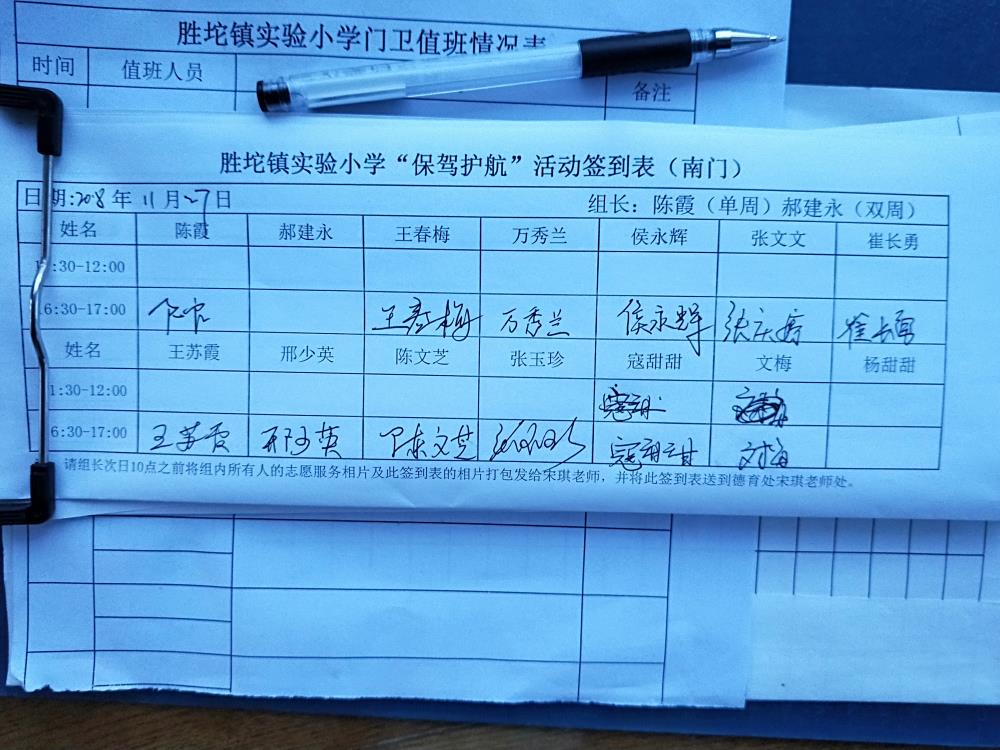 胜坨镇实验小学门卫值班情况表
时间 值班人员
备注
胜坨镇实验小学“保驾护航”活动签到表（南门）
日期:2018年 11月27日 组长：陈霞（单周）郝建永（双周）
姓名 陈霞 郝建永 王春梅 万秀兰 侯永辉 张文文 崔长勇
:30-12:00
6:30-17:00 王春梅 万秀兰 侯永辉 崔长勇
姓名 王苏霞 邢少英 陈文芝 张玉珍 寇甜甜 文梅 杨甜甜
1:30-12:00
6:30-17:00 王苏霞 邢少英 陈文芝 张玉珍 寇甜甜 文梅
请组长次日10点之前将组内所有人的志愿服务相片及此签到表的相片打包发给宋琪老师，并将此签到表送到德育处宋琪老师处。